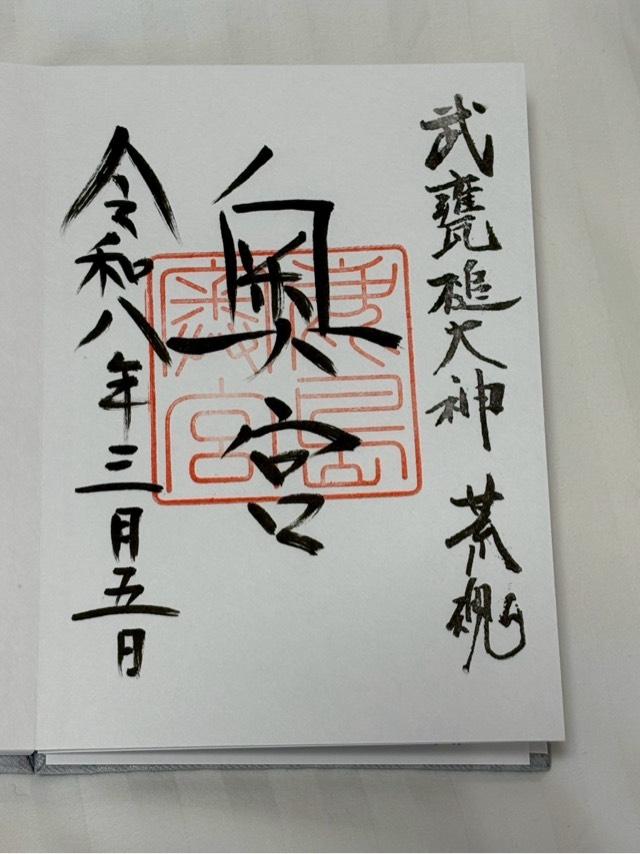 武甕槌大神 荒魂
奥宮
鹿島
神宮
令和八年三月五日